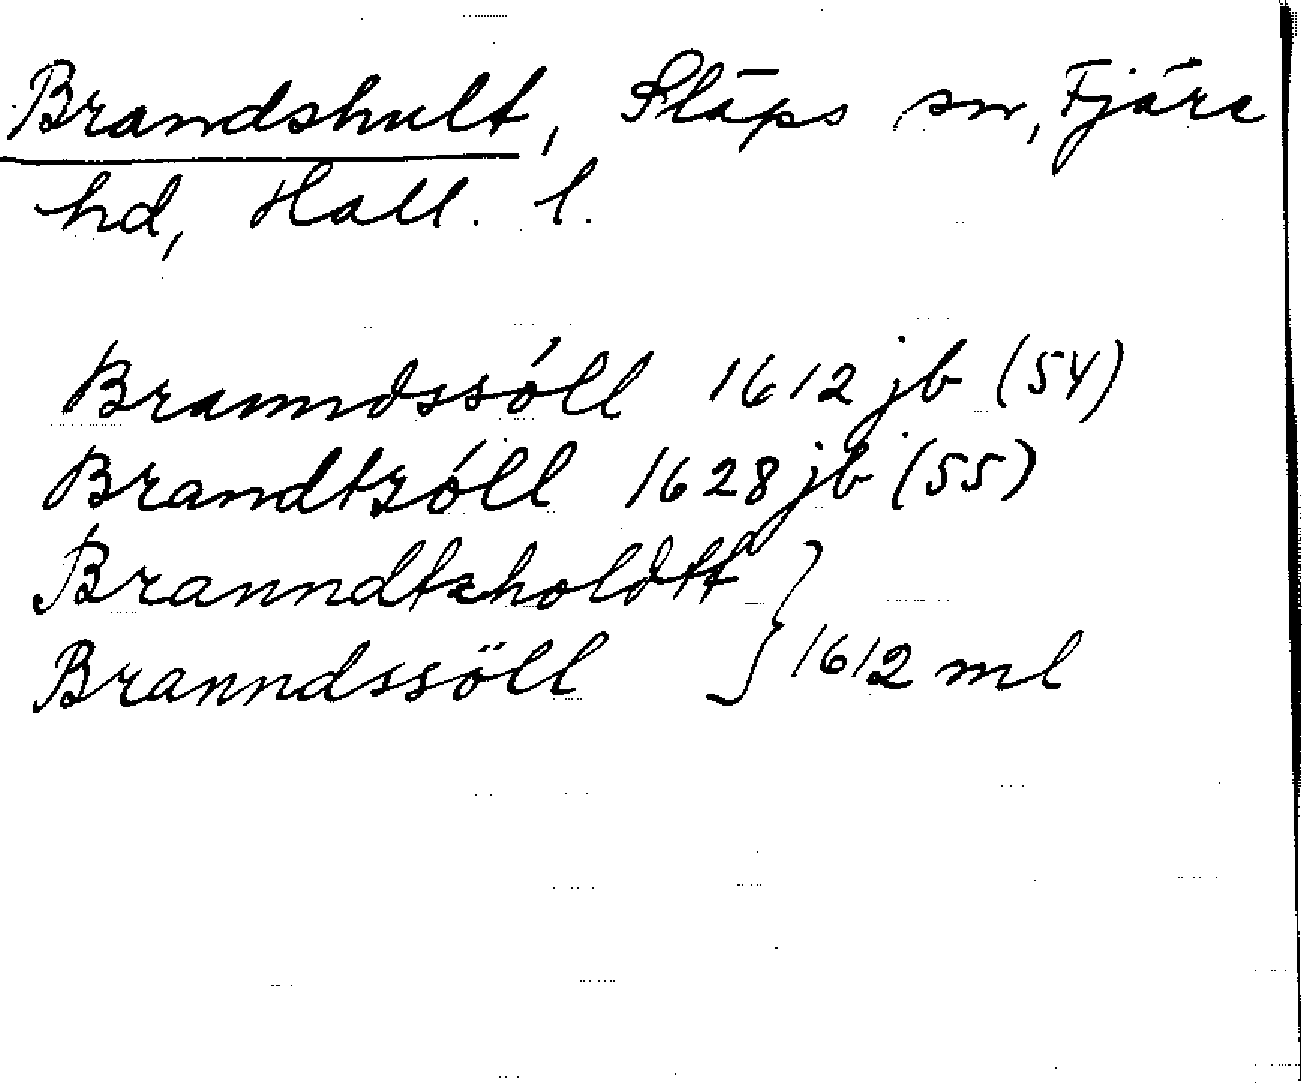 Brandshult, Släps sn, Fjäre
hd, Hall. l.
Branndssóll 1612 jb (54)
Brandtzóll 1628 jb (55)
Branndtzholdtt
Branndssöll } 1612 ml